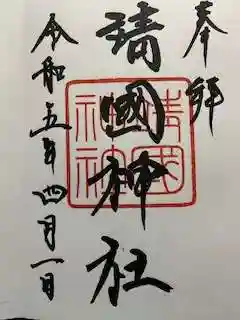 奉拝
靖國神社
靖国神社
令和五年四月一日